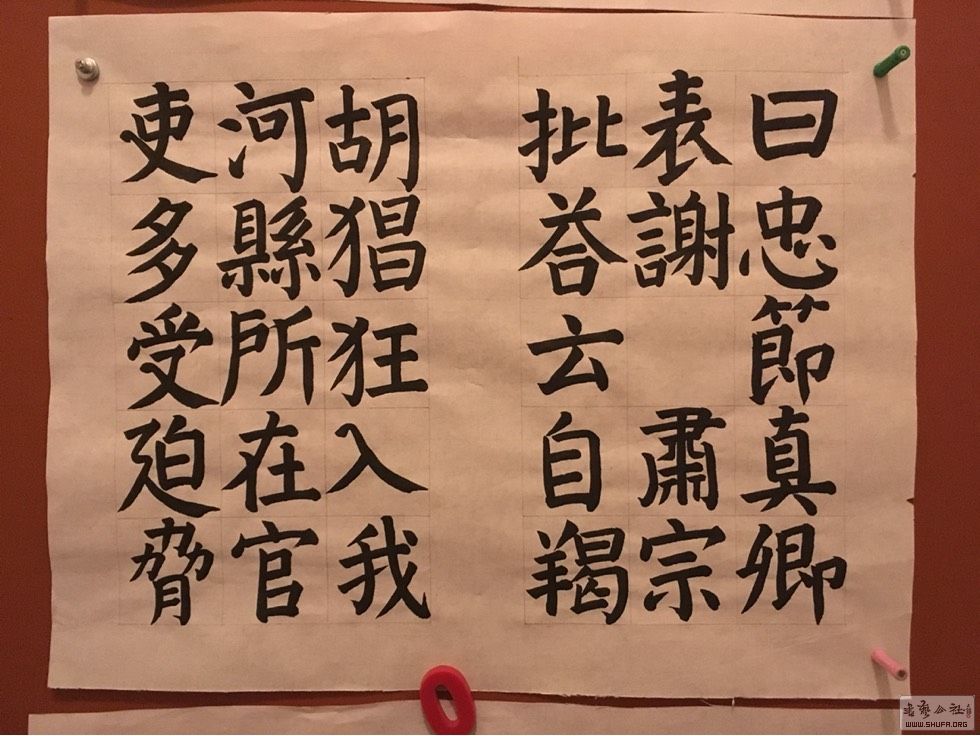 曰忠節真卿
表謝 肅宗
批荅云自羯
胡猖狂入我
河縣所在官
吏多受迫脅
WWW.SHUFA.ORG